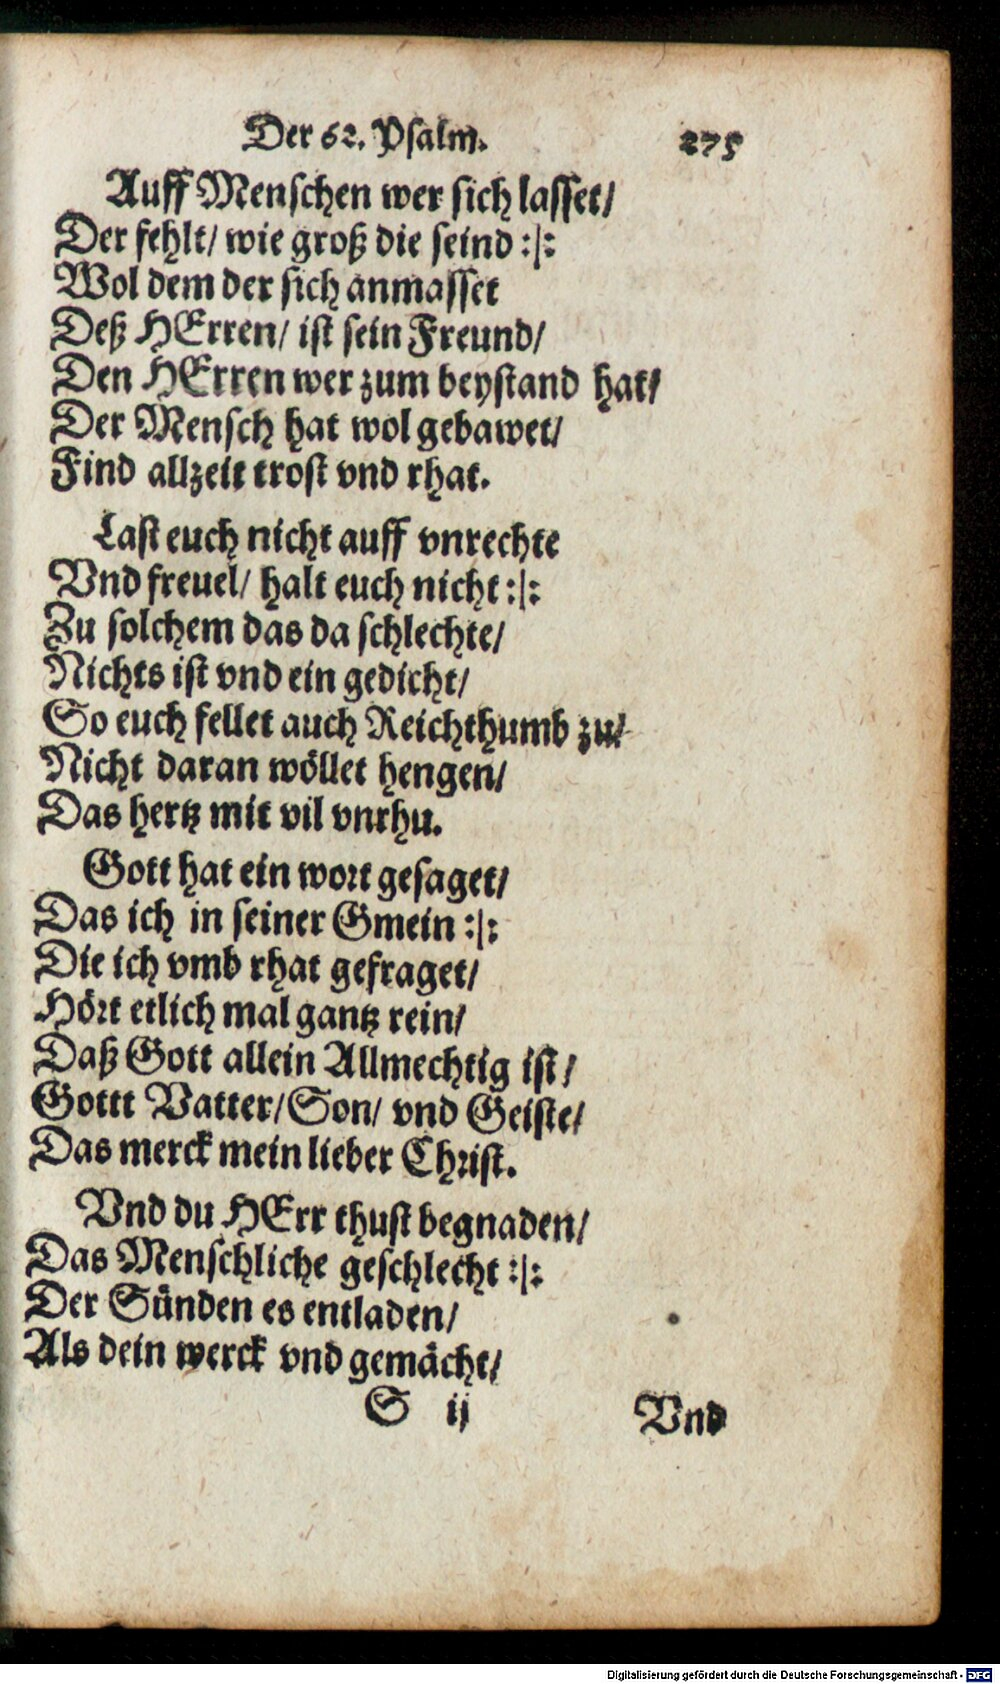 Der 62. Psalm. 275
Auff Menschen wer sich lasset/
Der fehlt/ wie groß die seind :|:
Wol dem der sich anmasset
Deß HErren/ ist sein Freund/
Den HErren wer zum beystand hat/
Der Mensch hat wol gebawet/
Find allzeit trost vnd rhat.
Last euch nicht auff vnrechte
Vnd freuel/ halt euch nicht :|:
Zu solchem das da schlechte/
Nichts ist vnd ein gedicht/
So euch fellet auch Reichthumb zu/
Nicht daran wöllet hengen/
Das hertz mit vil vnrhu.
Gott hat ein wort gesaget/
Das ich in seiner Gmein :|:
Die ich vmb rhat gefraget/
Hört etlich mal gantz rein/
Daß Gott allein Allmechtig ist/
Gottt Vatter/ Son/ vnd Geiste/
Das merck mein lieber Christ.
Vnd du HErr thust begnaden/
Das Menschliche geschlecht :|:
Der Sünden es entladen/
Als dein werck vnd gemächt/
S ij Vnd
Digitalisierung gefördert durch die Deutsche Forschungsgemeinschaft - DFG